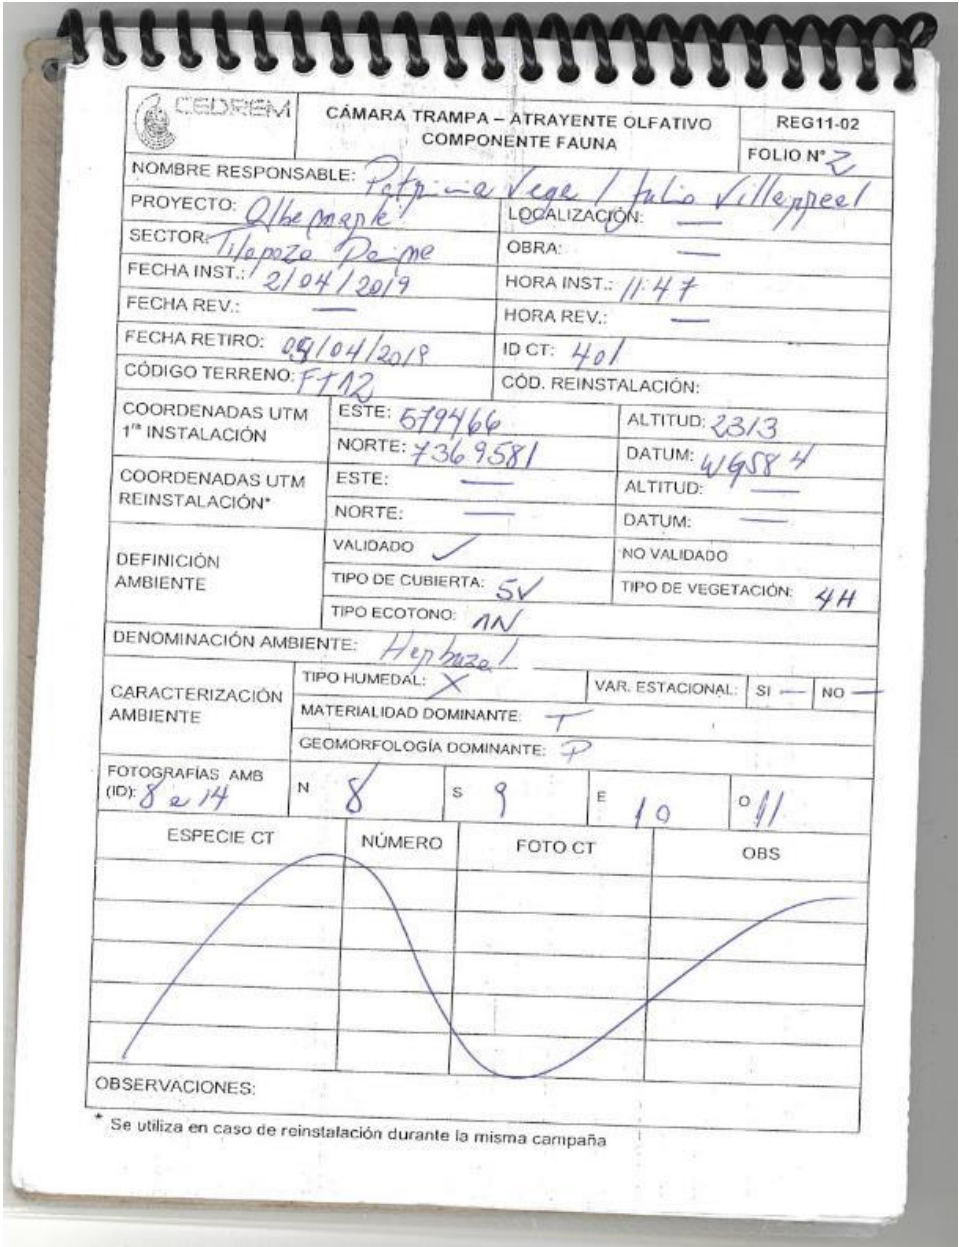 CEDREM
CÁMARA TRAMPA – ATRAYENTE OLFATIVO
COMPONENTE FAUNA
REG11-02
FOLIO N° 2
NOMBRE RESPONSABLE: Patricia Vega / Julio Villarreal
PROYECTO: Albemarle LOCALIZACIÓN: —
SECTOR: Tilopozo OBRA: —
FECHA INST.: 2/04/2019 HORA INST.: 11:47
FECHA REV.: — HORA REV.: —
FECHA RETIRO: /04/2019 ID CT: 401
CÓDIGO TERRENO: FTA2 CÓD. REINSTALACIÓN:
COORDENADAS UTM 1ra INSTALACIÓN ESTE: 579466 ALTITUD: 2313
NORTE: 7369581 DATUM: WGS84
COORDENADAS UTM REINSTALACIÓN* ESTE: — ALTITUD: —
NORTE: — DATUM: —
DEFINICIÓN AMBIENTE VALIDADO ✓ NO VALIDADO
TIPO DE CUBIERTA: 5V TIPO DE VEGETACIÓN: 4H
TIPO ECOTONO: NN
DENOMINACIÓN AMBIENTE: Herbazal
CARACTERIZACIÓN AMBIENTE TIPO HUMEDAL: X VAR. ESTACIONAL: SI — NO —
MATERIALIDAD DOMINANTE: T
GEOMORFOLOGÍA DOMINANTE: P
FOTOGRAFÍAS AMB (ID): 8 a 14 N 8 S 9 E 10 O 11
ESPECIE CT NÚMERO FOTO CT OBS
OBSERVACIONES:
* Se utiliza en caso de reinstalación durante la misma campaña